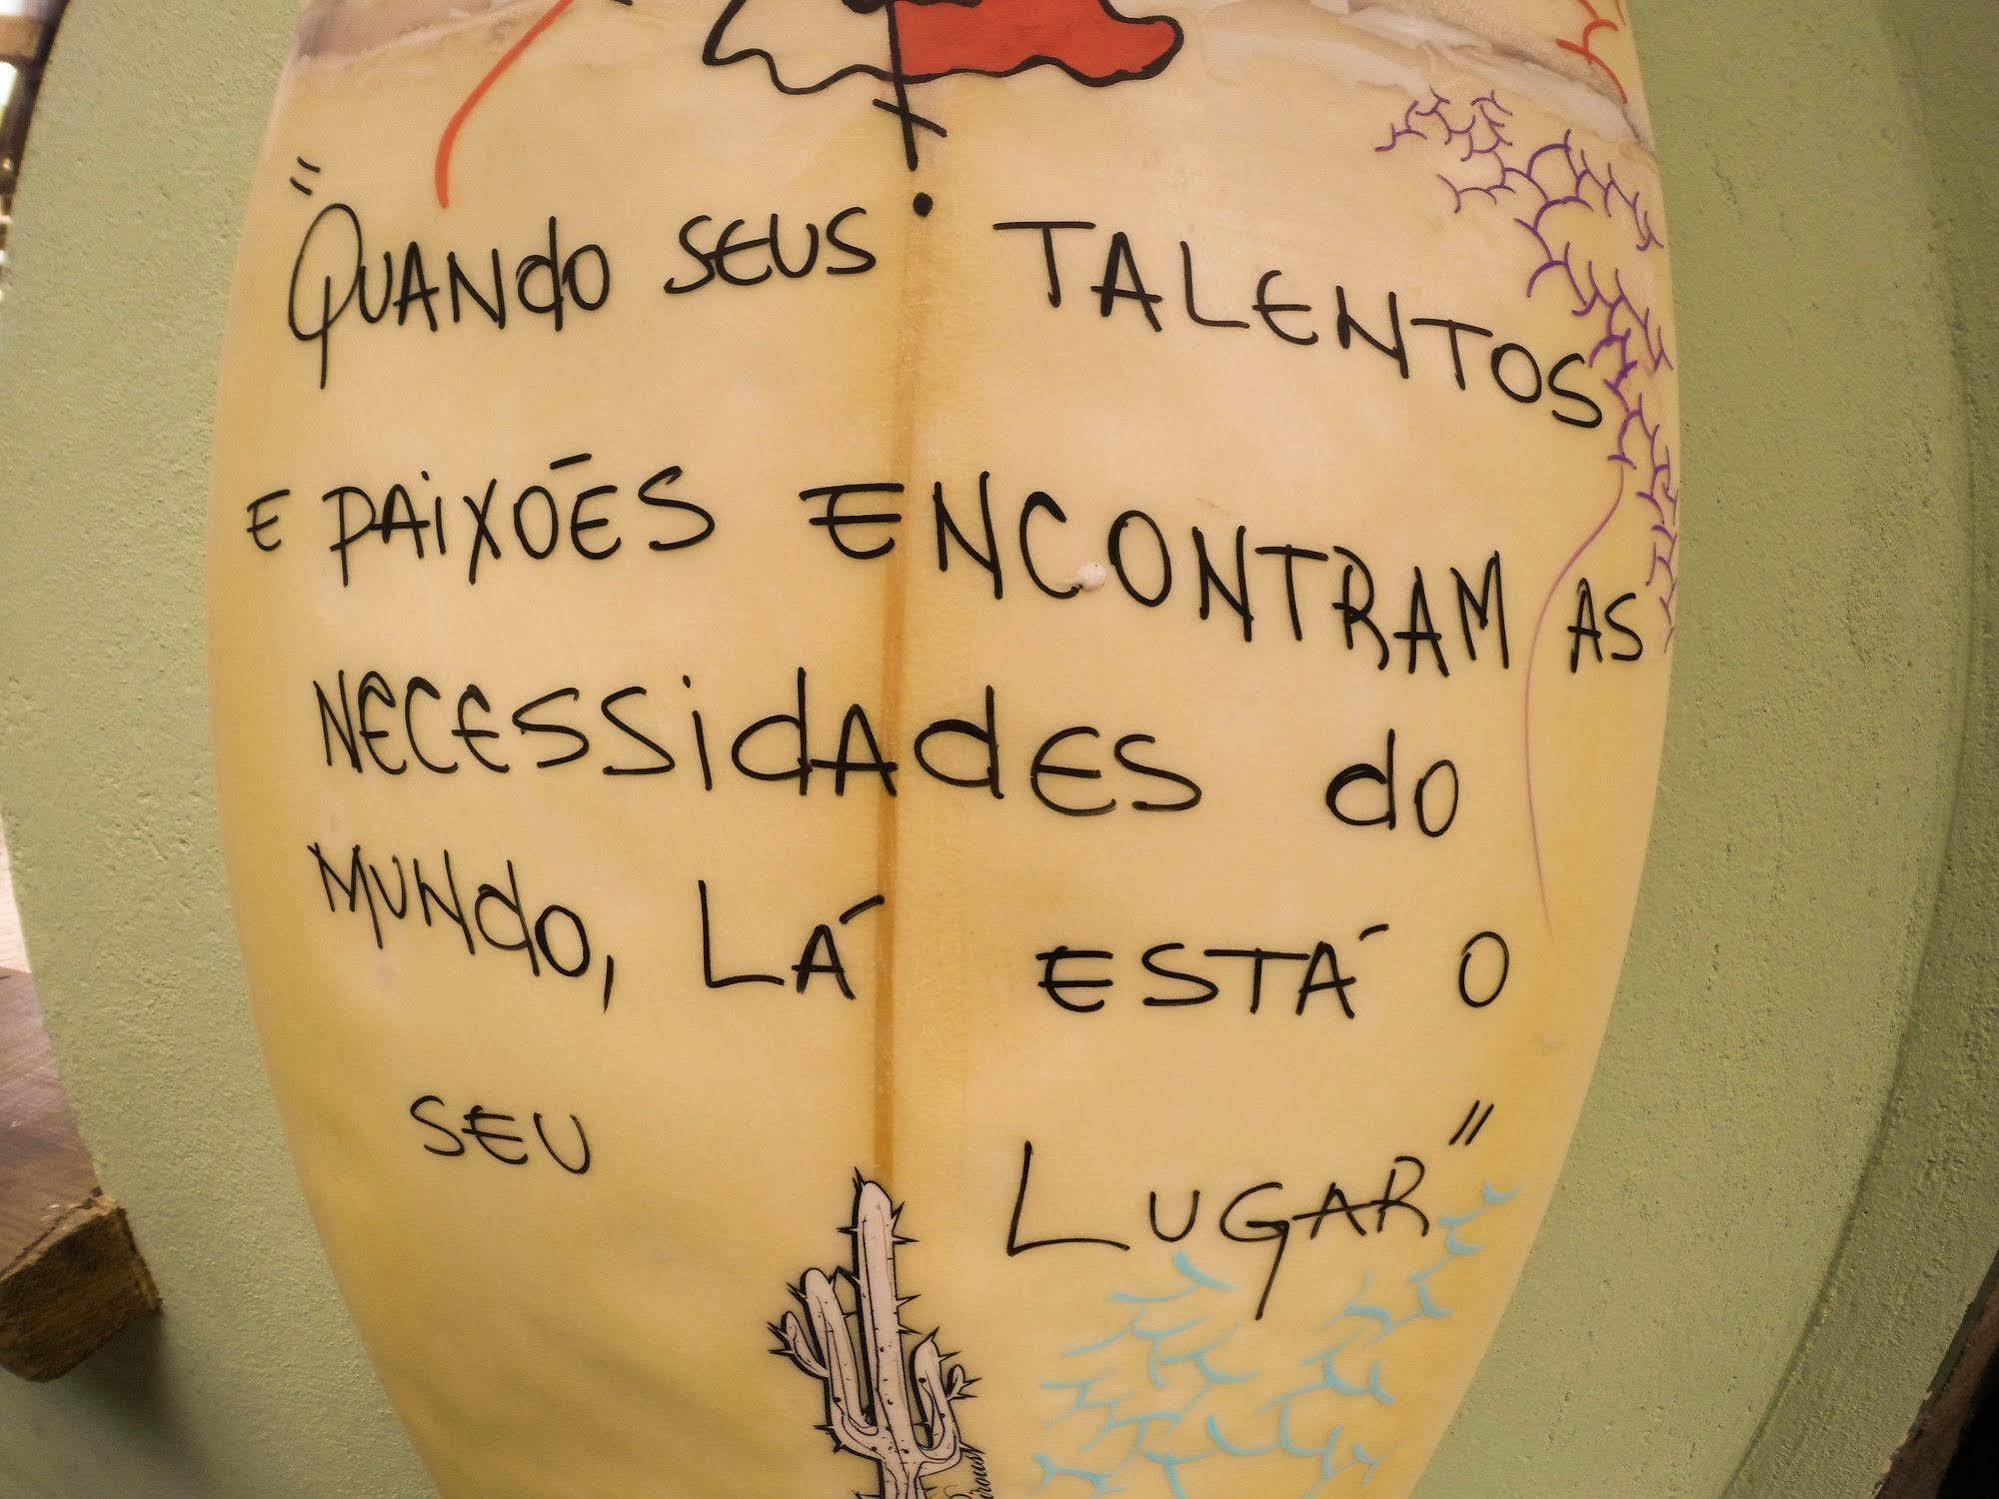 "QUANdO SEUS TALENTOS
E PAiXÕES ENCONTRAM AS
NECESSidAdES do
MUNdO, LÁ ESTÁ O
SEU LUGAR"